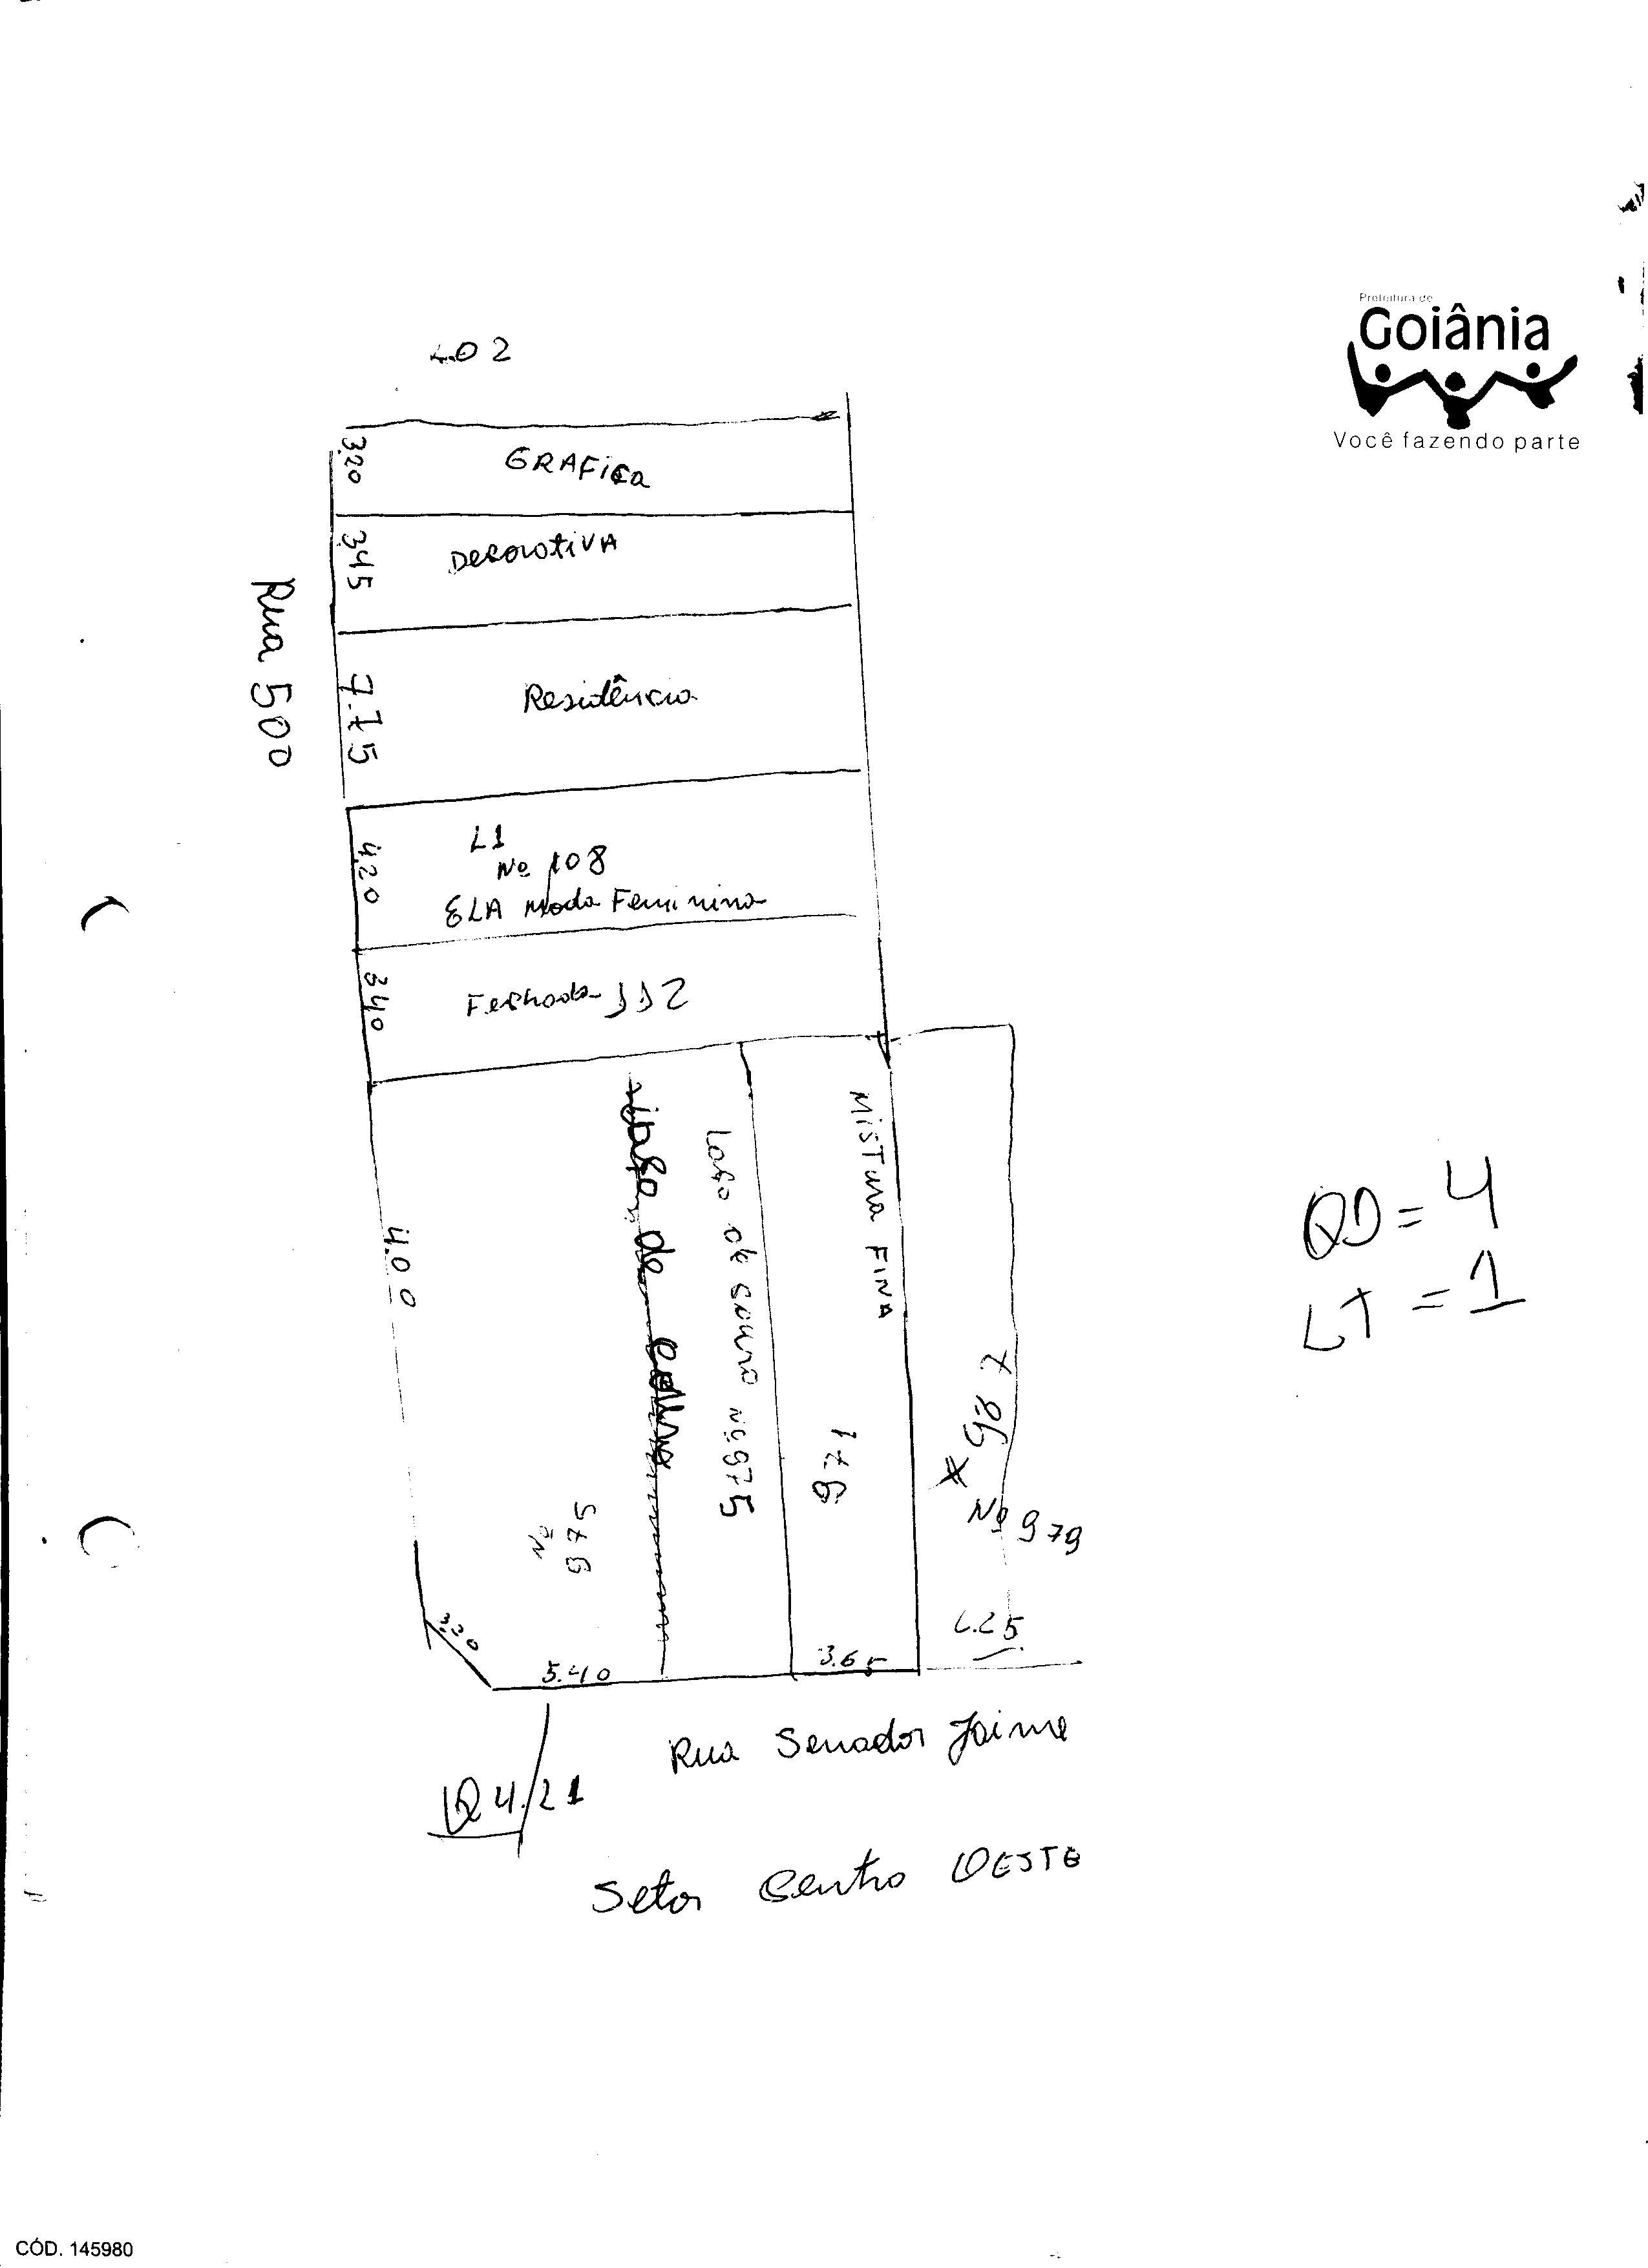 Prefeitura de
Goiânia
Você fazendo parte
L.02
3.20
GRAFica
3.45
DecorotiVA
Rua 500
7.75
Residência
4.20
L1
Nº 108
ELA Moda Feminina
3.40
Fechada 112
4.00
Laço de couro Nº 975
MISTura FINA
971
* 987
Nº 979
Nº
975
3.20
5.40
3.65
L.25
QD = 4
LT = 1
Rua Senador Jaime
Q 4/21
Setor Centro OESTE
CÓD. 145980